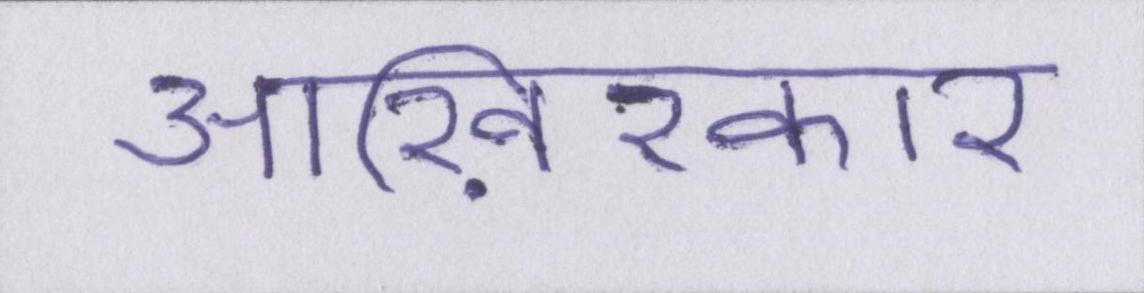 आख़िरकार